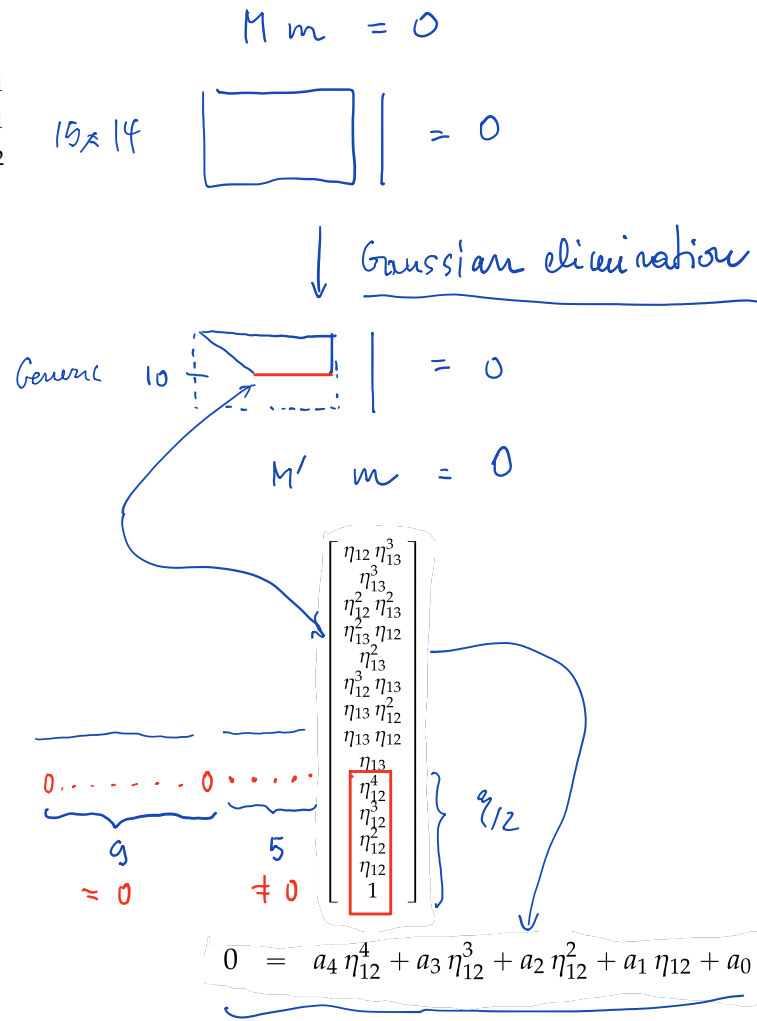 M m = 0
1
1
2
15 x 14 = 0
Gaussian elimination
Generic 10 = 0
M' m = 0
η₁₂ η₁₃³
η₁₃³
η₁₂² η₁₃²
η₁₃² η₁₂
η₁₃²
η₁₂³ η₁₃
η₁₃ η₁₂²
η₁₃ η₁₂
η₁₃
0.......0.....
η₁₂⁴
η₁₂³
η₁₂²
η₁₂
1
η₁₂
9 5
= 0 ≠ 0
0 = a₄ η₁₂⁴ + a₃ η₁₂³ + a₂ η₁₂² + a₁ η₁₂ + a₀